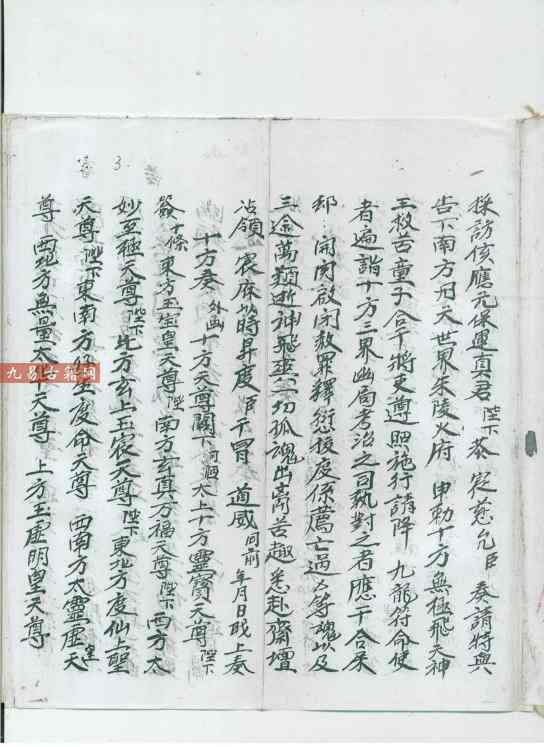 採訪使應元保運真君陛下恭望慈允臣奏請特與
告下南方丹天世界朱陵火府 申勅十方無極飛天神
王救苦童子合干將吏遵照施行請降 九龍符命使
者遍詣十方三界幽局考治之司執對之者應干合屬
去處 開関啟閉赦罪釋愆拔度係薦亡過
三途萬類逝神飛爽一切孤魂出离苦趣悉赴齋壇
沾領 宸庥以時昇度臣干冒 道威同前 年月日 上奏
十方奏 外函十方天尊闕下 內函太上十方靈寶天尊陛下
簽十條 東方玉宝皇天尊陛下 南方玄真万福天尊陛下 西方太
妙至極天尊陛下 北方玄上玉宸天尊陛下 東北方度仙上聖
天尊陛下 東南方 度命天尊 西南方太靈虛皇天
尊 西北方無量太華天尊 上方玉虛明皇天尊
3
九易古籍网